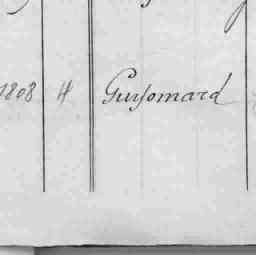 1808 4 Guyomard